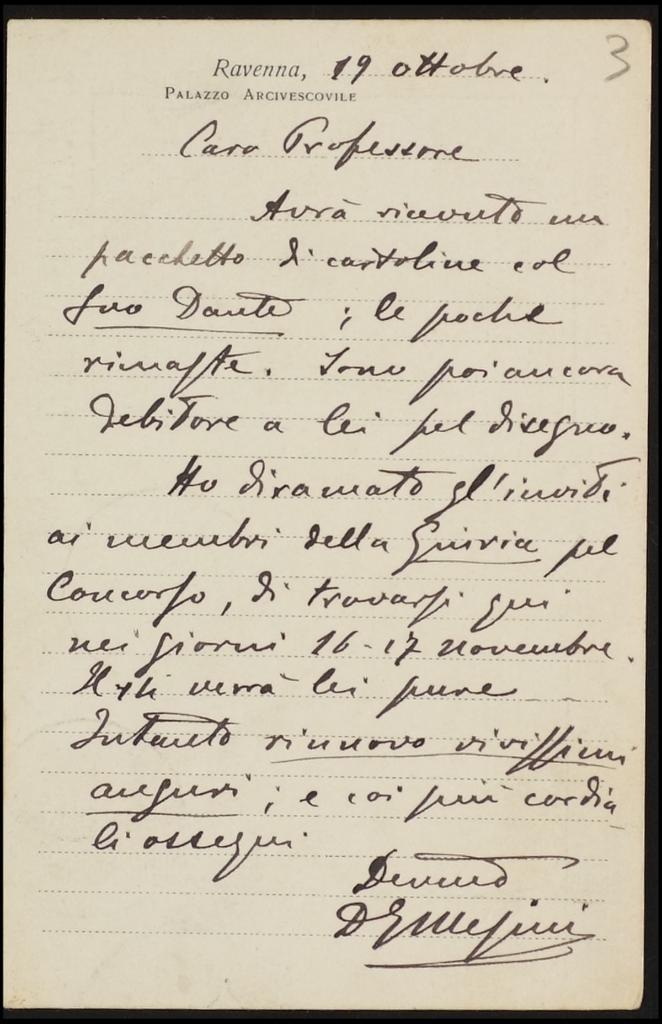 3
Ravenna, 19 ottobre.
PALAZZO ARCIVESCOVILE
Caro Professore
Avrà ricevuto un
pacchetto di cartoline col
suo Dante ; le poche
rimaste. Sono poi ancora
debitore a lei pel disegno.
Ho diramato gl'inviti
ai membri della Giuria pel
Concorso, di trovarsi qui
nei giorni 16-17 novembre.
verrà lei pure
Intanto rinnovo vivissimi
auguri ; e coi più cordia
li ossequi
Devmo
Mesini